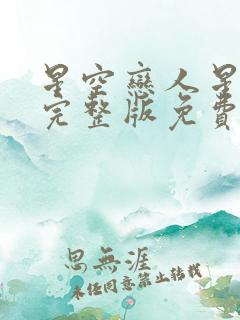 星空戀人星
完整版免費
思無涯
未任同意禁止轉載